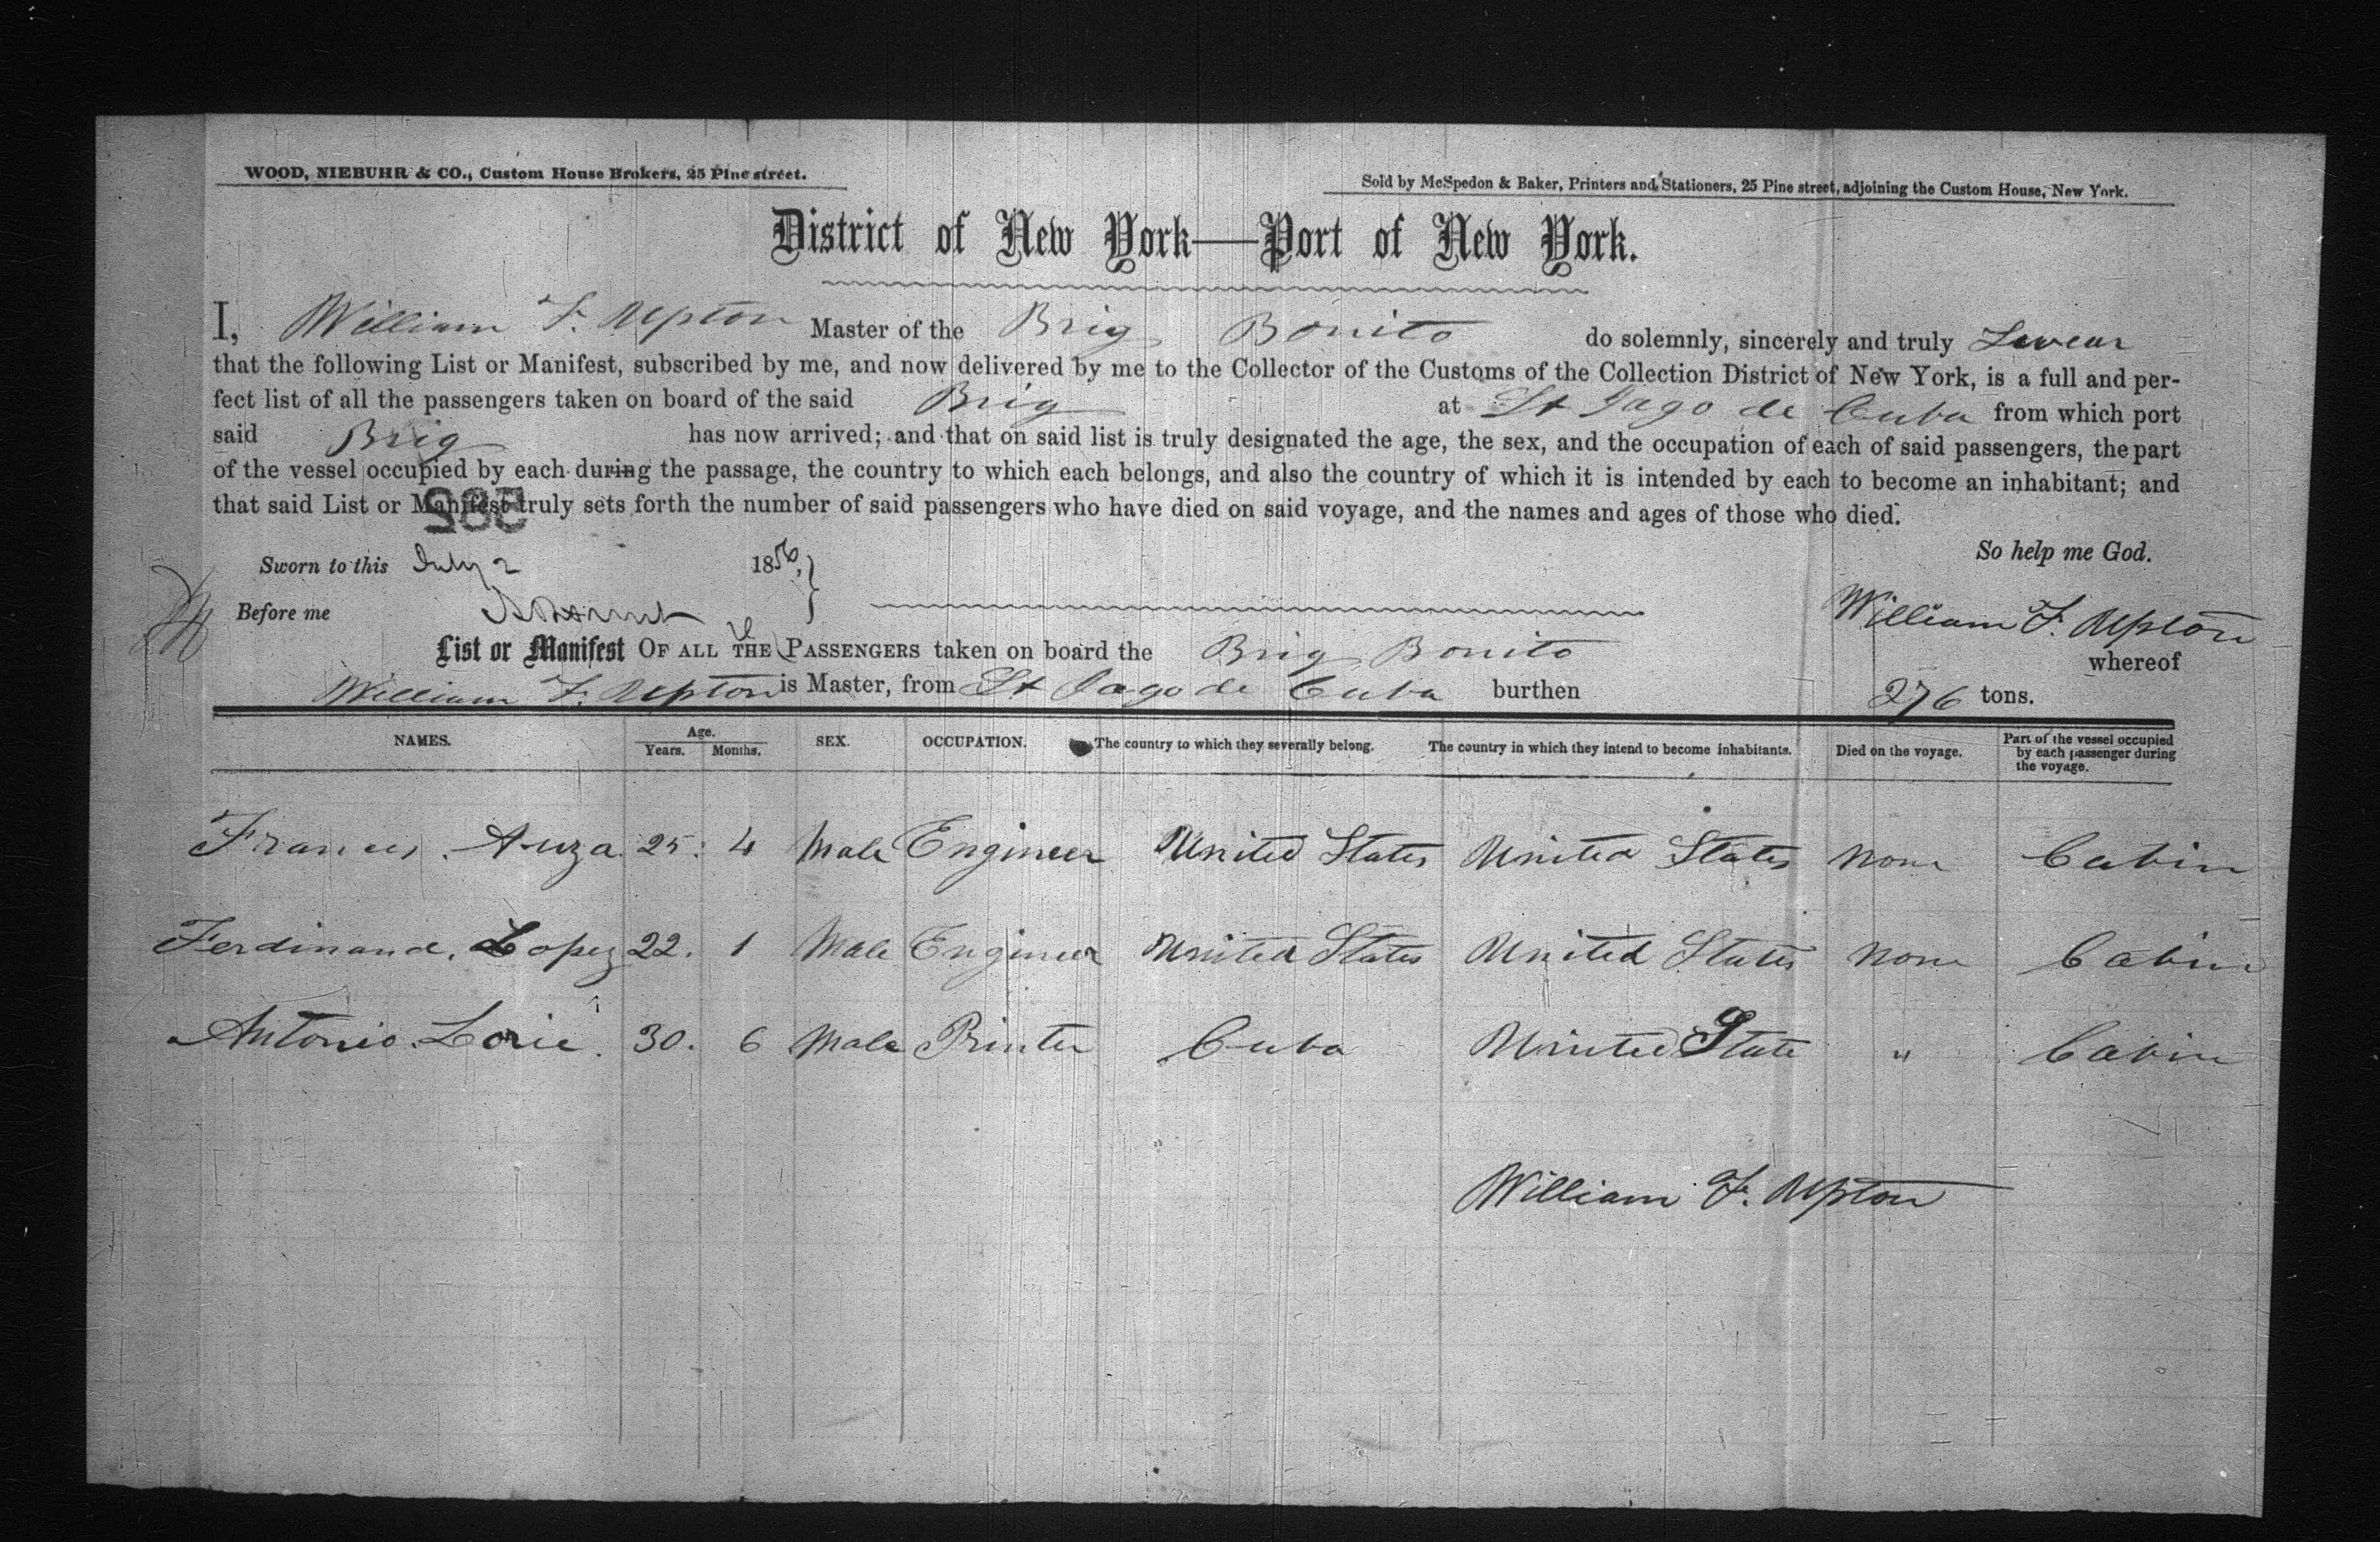 WOOD, NIEBUHR & CO., Custom House Brokers, 25 Pine street.
Sold by McSpedon & Baker, Printers and Stationers, 25 Pine street, adjoining the Custom House, New York.
District of New York—Port of New York.
I, William F. Upton Master of the Brig Bonito do solemnly, sincerely and truly Swear
that the following List or Manifest, subscribed by me, and now delivered by me to the Collector of the Customs of the Collection District of New York, is a full and per-
fect list of all the passengers taken on board of the said Brig at St Jago de Cuba from which port
said Brig has now arrived; and that on said list is truly designated the age, the sex, and the occupation of each of said passengers, the part
of the vessel occupied by each during the passage, the country to which each belongs, and also the country of which it is intended by each to become an inhabitant; and
that said List or Manifest truly sets forth the number of said passengers who have died on said voyage, and the names and ages of those who died.
So help me God.
Sworn to this July 2 1856,
Before me
William F. Upton
List or Manifest OF ALL THE PASSENGERS taken on board the Brig Bonito whereof
William F. Upton is Master, from St Jago de Cuba burthen 276 tons.
NAMES. Age. Years. Months. SEX. OCCUPATION. The country to which they severally belong. The country in which they intend to become inhabitants. Died on the voyage. Part of the vessel occupied by each passenger during the voyage.
Frances. Auza. 25. 4 Male Engineer United States United States None Cabin
Ferdinand. Lopez 22. 1 Male Engineer United States United States None Cabin
Antonio. Lorie. 30. 6 Male Printer Cuba United State " Cabin
William F. Upton